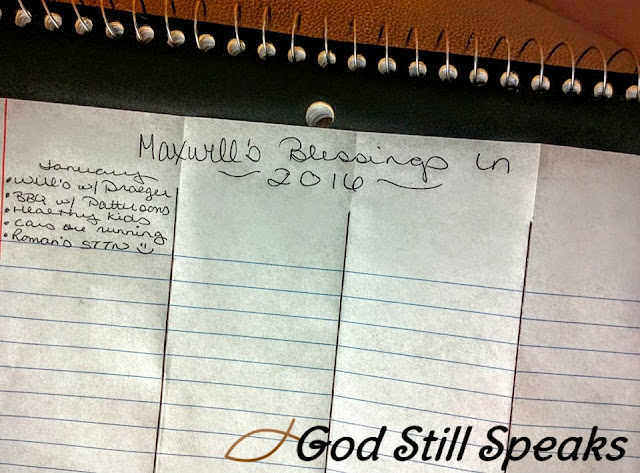 Maxwell's Blessings in
2016
January
• Will's w/ Draeger
• BBQ w/ Pattersons
• Healthy kids
• cars are running
• Roman's STTN
God Still Speaks